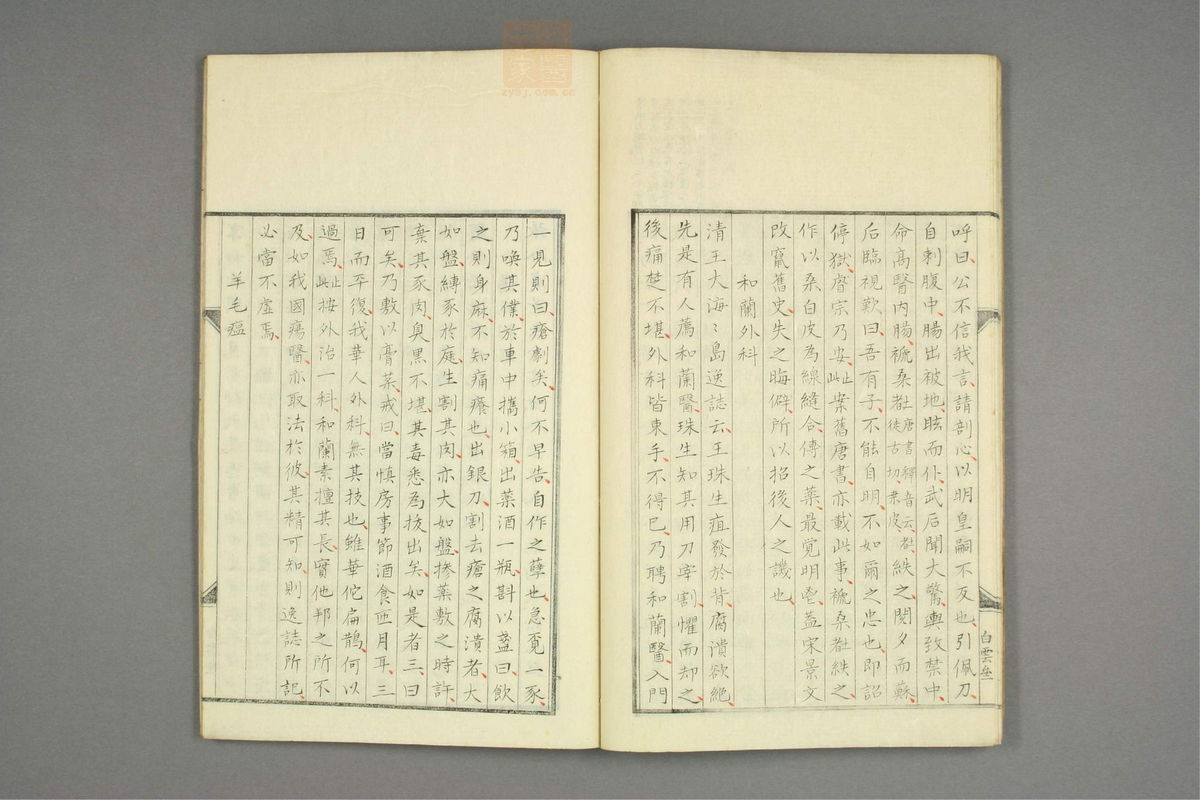 呼曰、公不信我言、請剖心、以明皇嗣不反也、引佩刀、
自剌腹中、腸出被地、眩而仆、武后聞大驚、輿致禁中、
命高醫内腸、褫桑𣏌唐書釋音云、𣏌、徒古切、桒皮、紩之、閲夕而蘇、
后臨視歎曰、吾有子、不能自明、不如爾之忠也、即詔
停獄、睿宗乃安、止此案舊唐書、亦載此事、褫桑𣏌紩之、
作以桑白皮為線縫合、傅之藥、最覚明鬯、蓋宋景文
改竄舊史、失之晦僻、所以招後人之譏也、
和蘭外科
清王大海〻島逸誌云、王珠生疽發於背、腐潰欲絶、
先是有人薦和蘭醫、珠生知其用刀宰割、懼而却之、
後痛楚不堪、外科皆束手、不得已、乃聘和蘭醫、入門
白雲㘴
一見則曰、瘡劇矣、何不早告、自作之孽也、急覔二豕、
乃喚其僕、於車中攜小箱、出藥酒一瓶、斟以盞曰、飲
之則身麻、不知痛癢也、出銀刀、割去瘡之腐潰者、大
如盤、縛豕於庭、生割其肉、亦大如盤、摻藥敷之、時許、
棄其豕肉、臭黑不堪、其毒悉為拔出矣、如是者三、曰
可矣、乃敷以膏藥、戒曰、當慎房事、節酒食、匝月耳、三
日而平復、我華人外科、無其技也、雖華佗扁鵲、何以
過焉、止此按外治一科、和蘭素擅其長、實他邦之所不
及、如我國瘍醫、亦取法於彼、其精可知、則逸誌所記、
必當不虛焉、
羊毛瘟